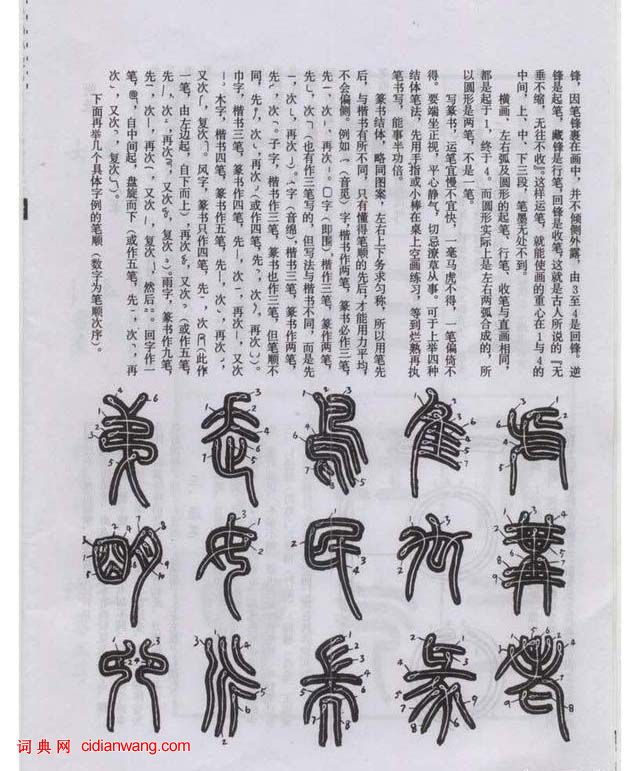 锋，因笔锋裹在画中，并不倾侧外露，由3至4是回锋。逆
锋是起笔，藏锋是行笔，回锋是收笔，这就是古人所说的『无
垂不缩，无往不收』。这样运笔，就能使画的重心在1与4的
中间，上、中、下三段，笔墨无处不到。
横画，左右弧及圆形的起笔、行笔、收笔与直画相同，
都是起于1，终于4。而圆形实际上是左右两弧合成的，所
以圆形是两笔，不是一笔。
写篆书，运笔宜慢不宜快，一毫马虎不得，一笔偏倚不
得。要端坐正视，平心静气，切忌潦草从事。可于上举四种
结体笔法，先用手指或小棒在桌上空画练习，等到烂熟再执
笔书写，能事半功倍。
篆书结体，略同图案，左右上下务求匀称，所以用笔先
后，与楷书有所不同，只有懂得笔顺的先后，才能用力平均，
不会偏侧。例如 (音见) 字，楷书作两笔，篆书必作三笔，
先 次 也有作三笔写的，但写法与楷书不同，而是先
次 再次 字（即围），楷作三笔，篆作两笔，
先 次 字（音绵）楷书三笔，篆书作两笔，
先 次 子字，楷书三笔，篆书也作三笔，但笔顺不
同，先 次 再次 （或作四笔，先 次 再次
巾字，楷书三笔，篆书作四笔，先 次 再次 又次
木字，楷书四笔，篆书作五笔，先 次 再次
又次 复次 风字，篆书只作四笔，先 次 （此作
一笔，由左边起，自下而上），再次 又次 （或作五笔，
先 次 再次 又次 复次 雨字，篆书作九笔，
先 次 再次 又次 复次 然后 回字作一
笔， 自中间起，盘旋而下（或作五笔，先 次 再
次 又次 复次
下面再举几个具体字例的笔顺（数字为笔顺次序）。
词典网 cidianwang.com